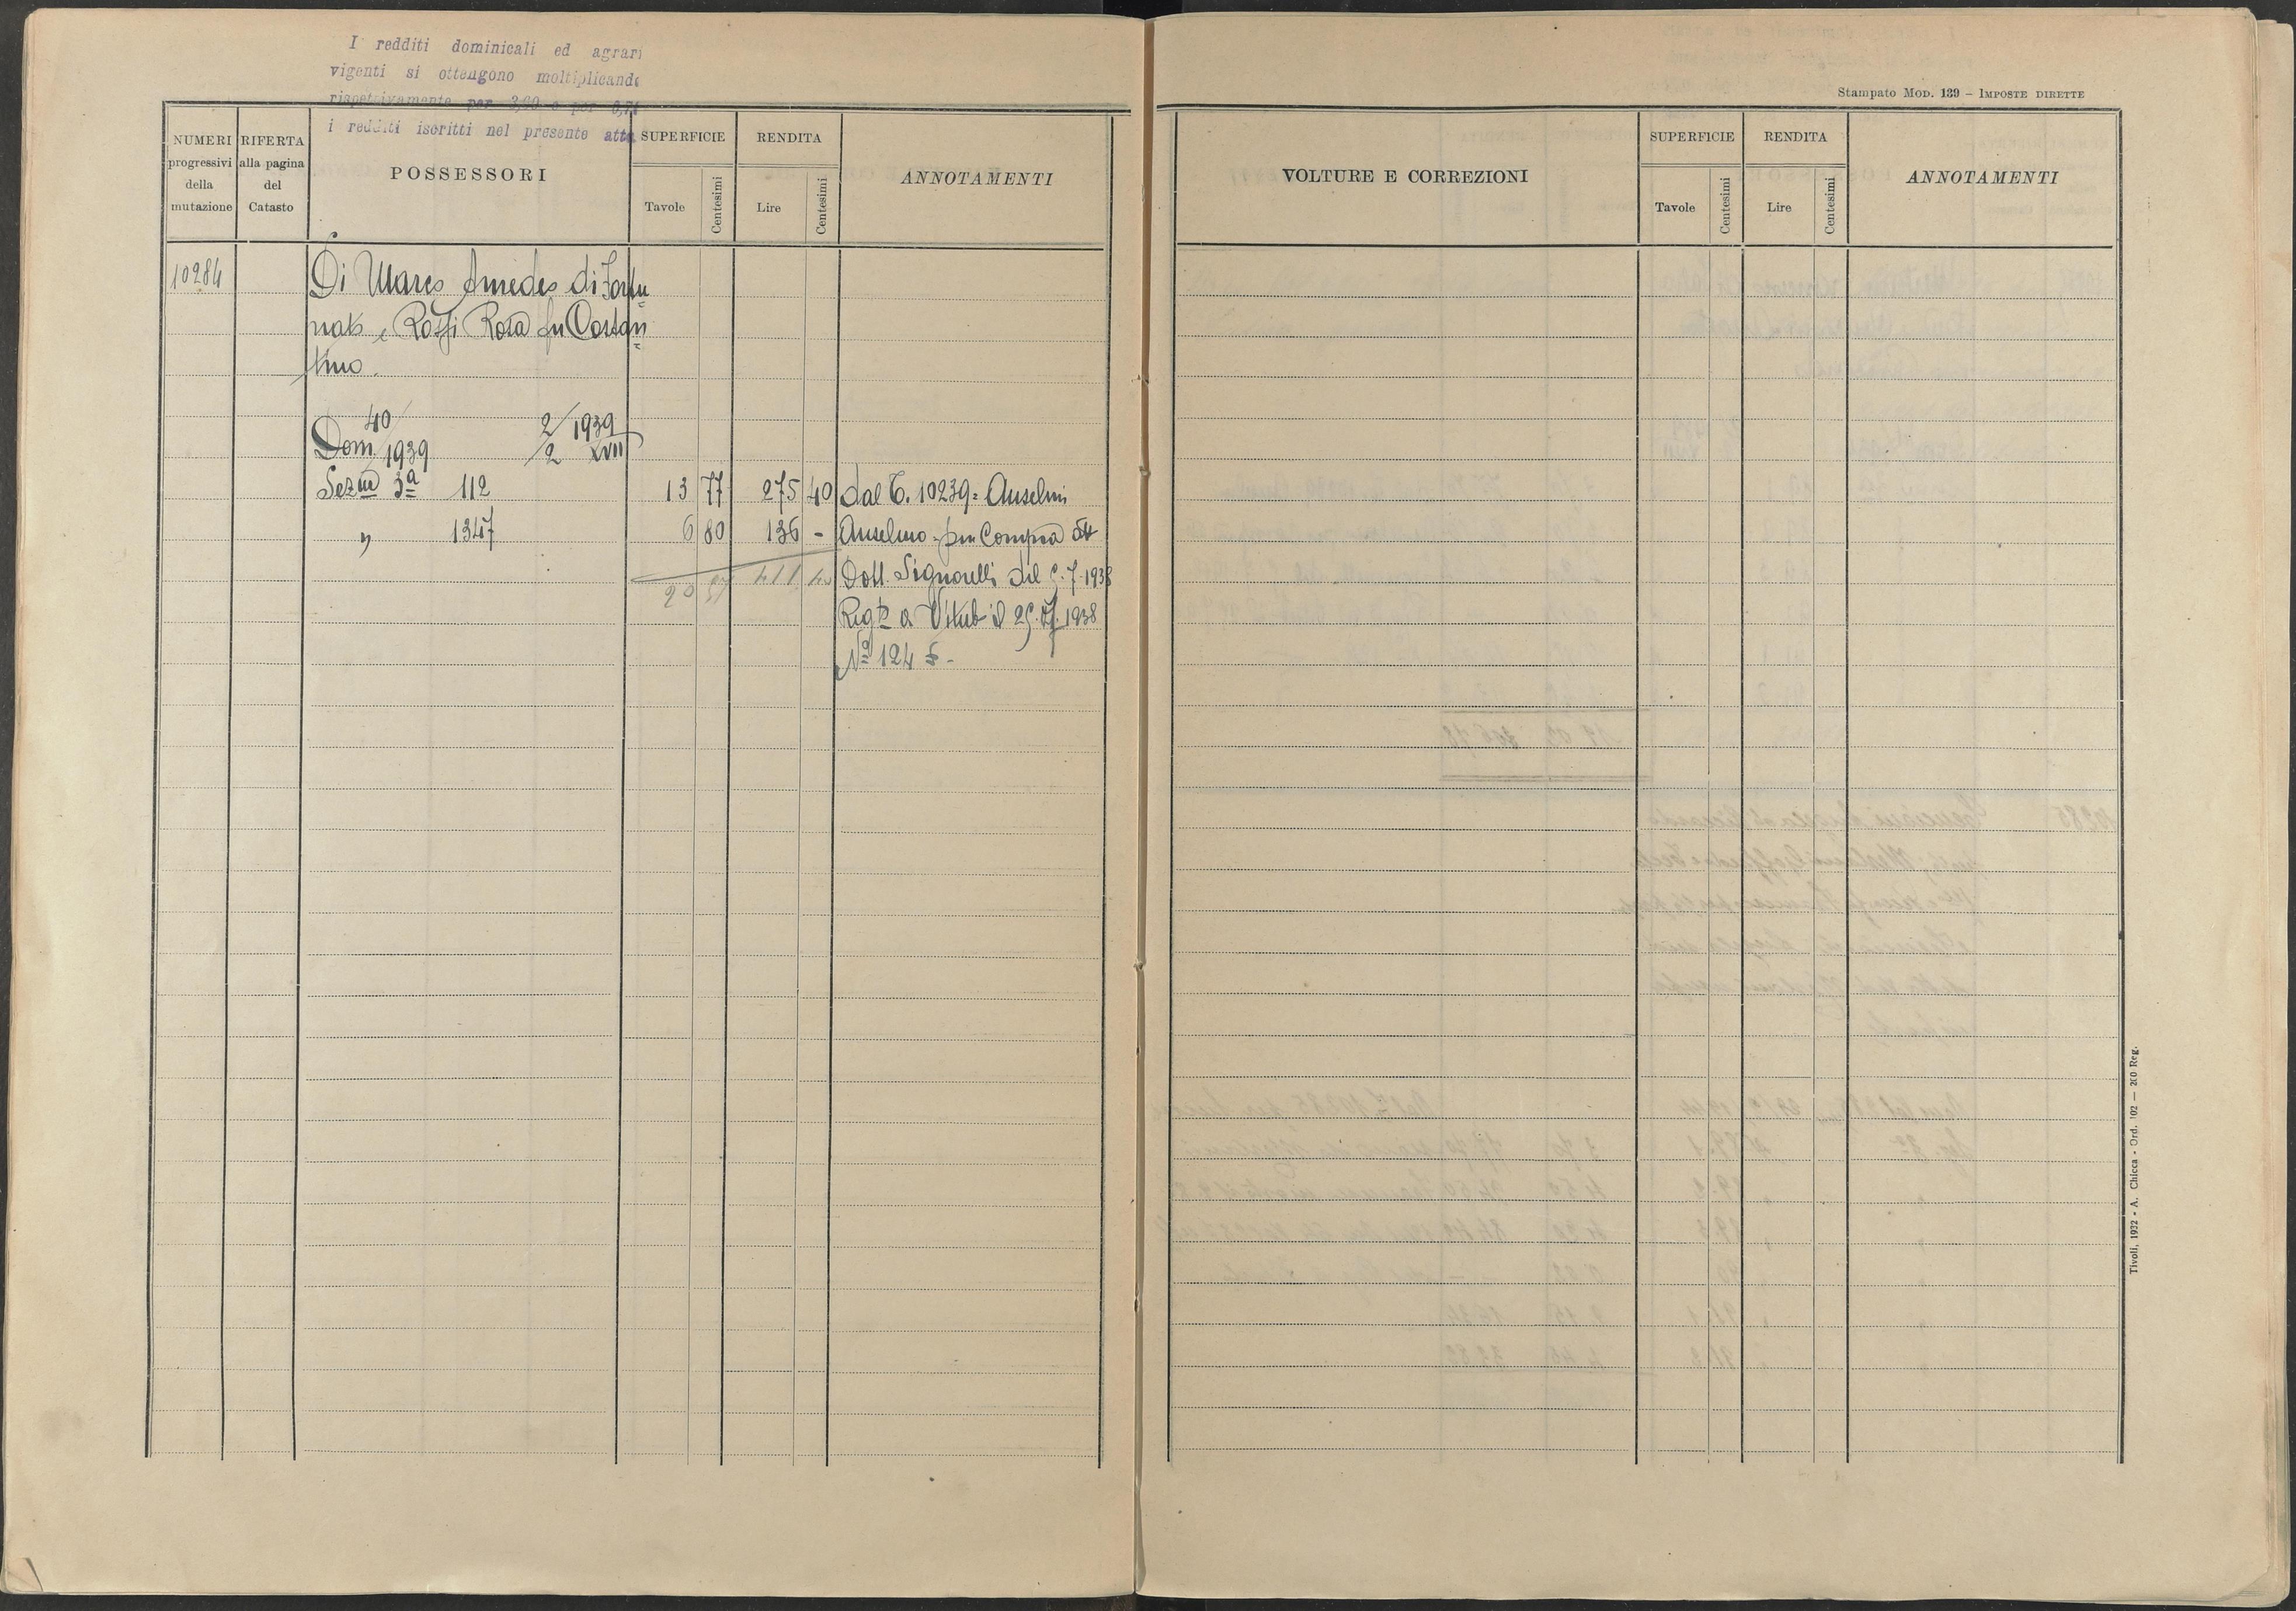 I redditi dominicali ed agrari
vigenti si ottengono moltiplicando
rispettivamente per 3,60 e per 6,71
i redditi iscritti nel presente atto
Stampato Mod. 139 – Imposte dirette
NUMERI progressivi della mutazione
RIFERTA alla pagina del Catasto
POSSESSORI
SUPERFICIE
Tavole
Centesimi
RENDITA
Lire
Centesimi
ANNOTAMENTI
10284
Di Mares Amedes di Fortu=
nato e Rossi Rosa fu Costan=
tino.
Dom. 40/1939 2/2 1939 XVII
Sez.ne 3ª 112 13 77 275 40 dal C. 10239 = Anselmi
" 1347 6 80 136 - Anselmo - per Compra
20 57 411 40 Dott. Signorelli del 7-1938
Regto a Viterb il 25.7.1938
Nº 124
VOLTURE E CORREZIONI
SUPERFICIE
Tavole
Centesimi
RENDITA
Lire
Centesimi
ANNOTAMENTI
Tivoli, 1932 - A. Chicca - Ord. 102 — 200 Reg.